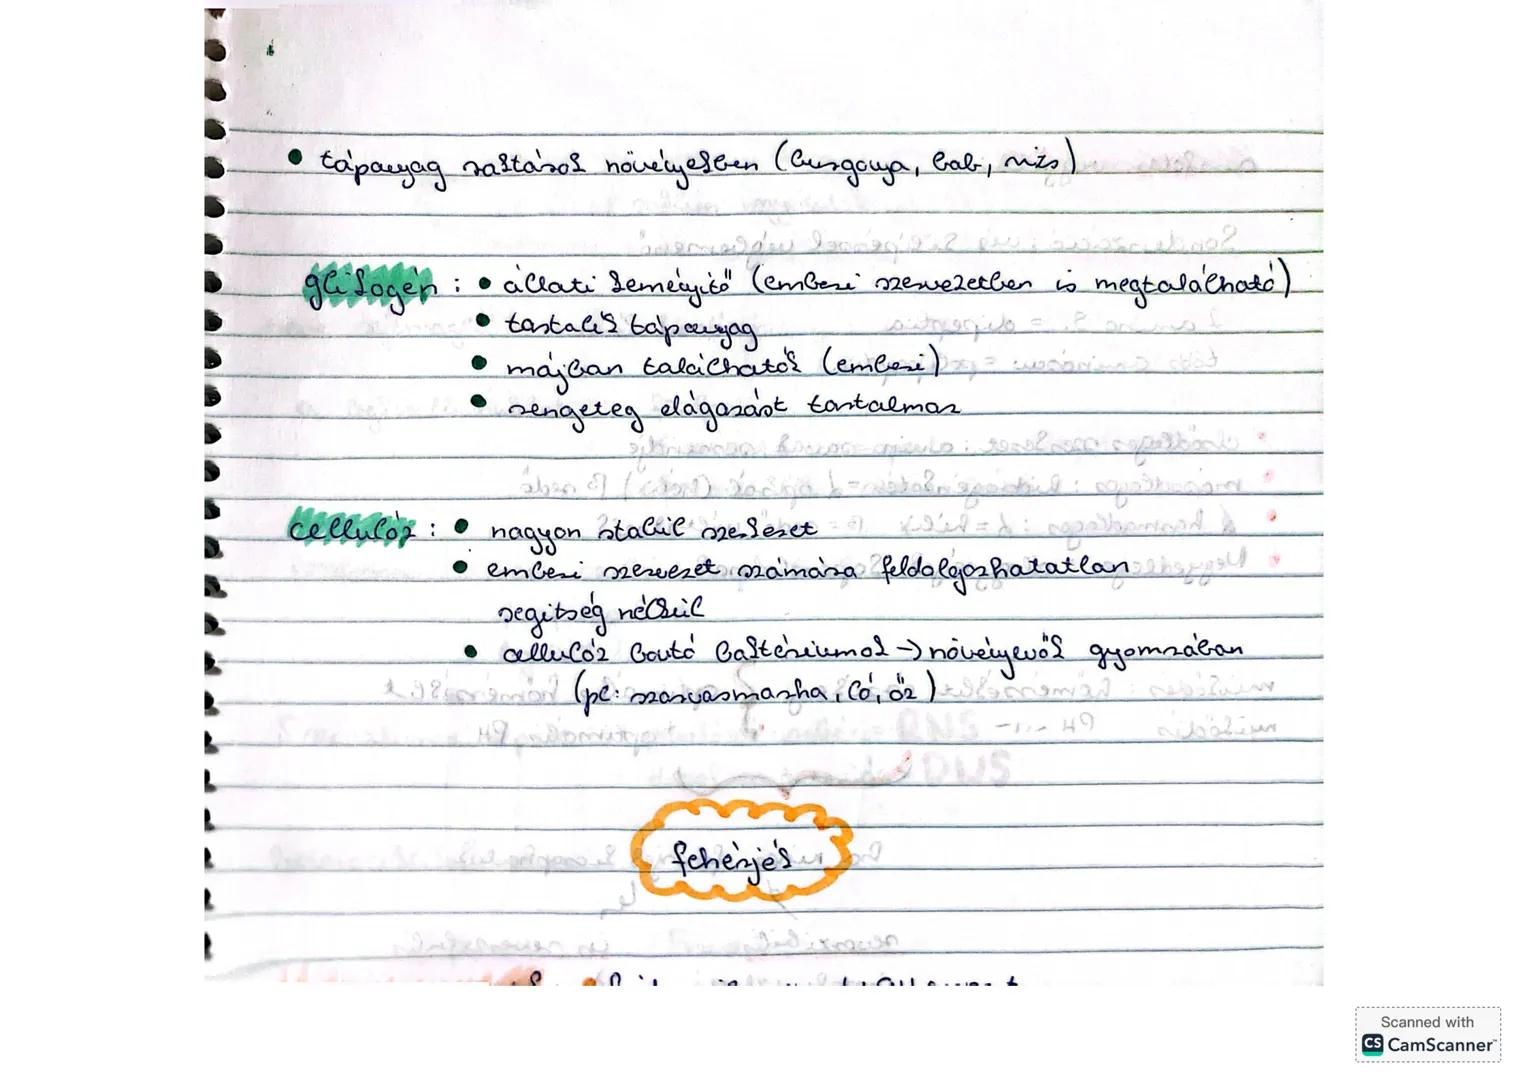 • tápanyag raktárok növényekben (burgonya, bab, rizs)
glikogén : • állati keményítő (emberi szervezetben is megtalálható)
• tartalék tápanyag
• májban találhatók (emberi)
• rengeteg elágazást tartalmaz
cellulóz : • nagyon stabil szerkezet
• emberi szervezet számára feldolgozhatatlan
segítség nélkül
• cellulóz bontó baktériumok → növényevők gyomrában
(pl: szarvasmarha, ló, őz)
fehérjék
Scanned with
CS CamScanner